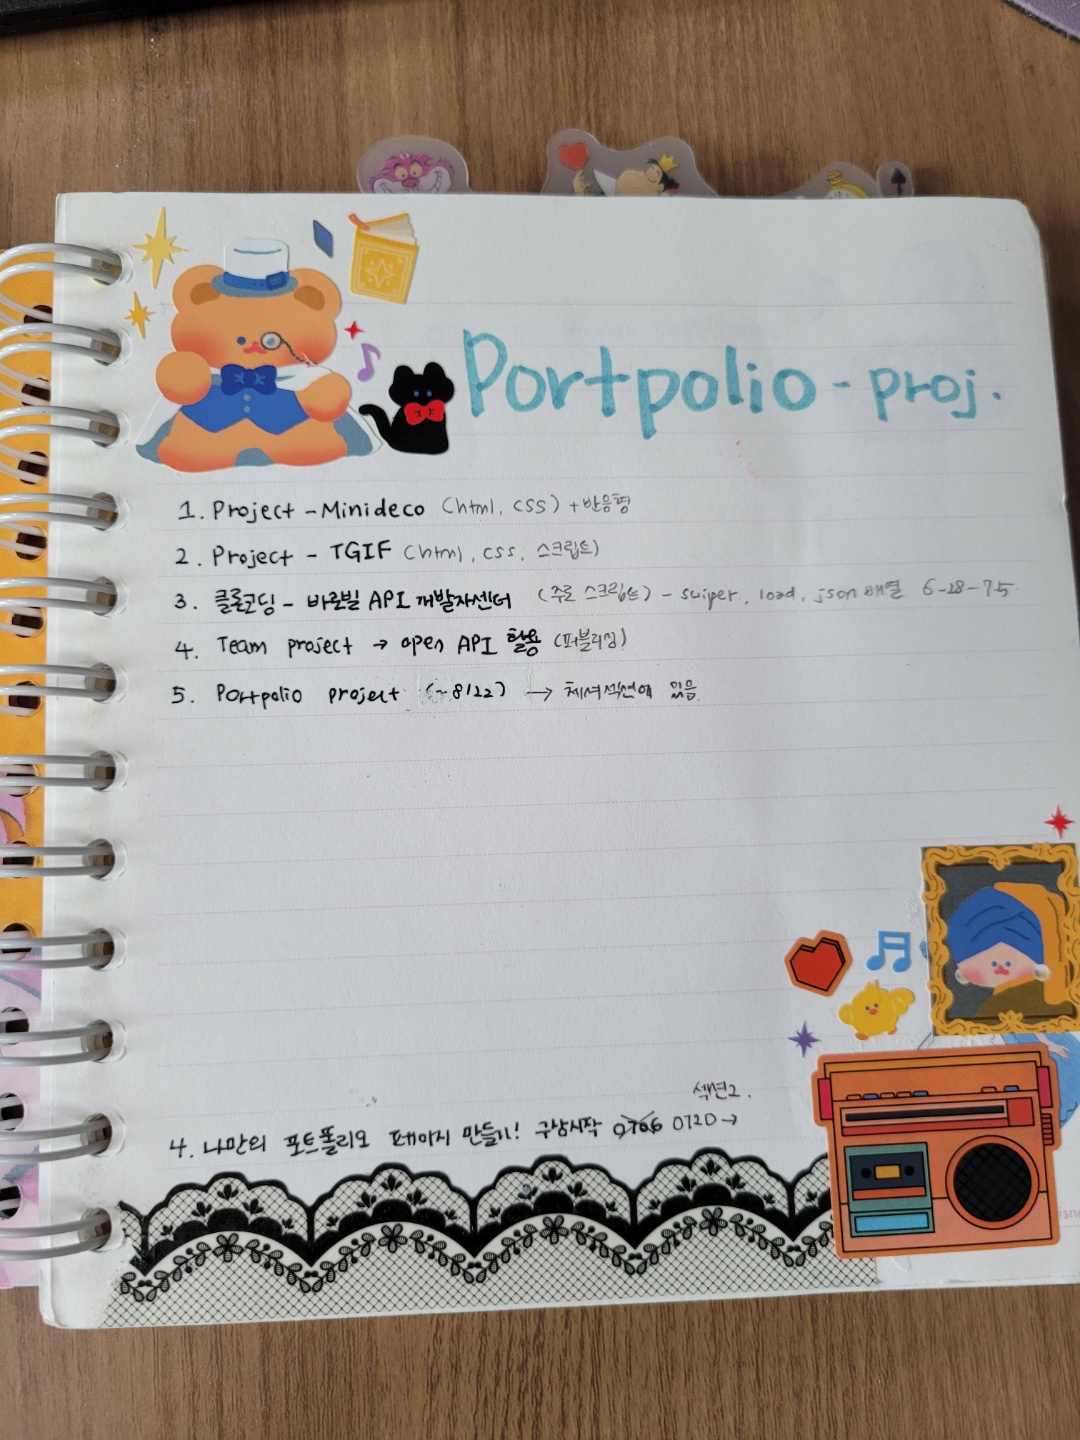 Portpolio - proj.
1. Project - Minideco (html, css) +반응형
2. Project - TGIF (html, css, 스크립트)
3. 클론코딩 - 바로빌 API 개발자센터 (주로 스크립트) - swiper, load, json 배열 6-28-75
4. Team project → open API 활용 (퍼블리싱)
5. Portpolio project (~8/22) → 체셔섹션에 있음.
섹션2.
4. 나만의 포트폴리오 페이지 만들기! 구상시작 0720 →